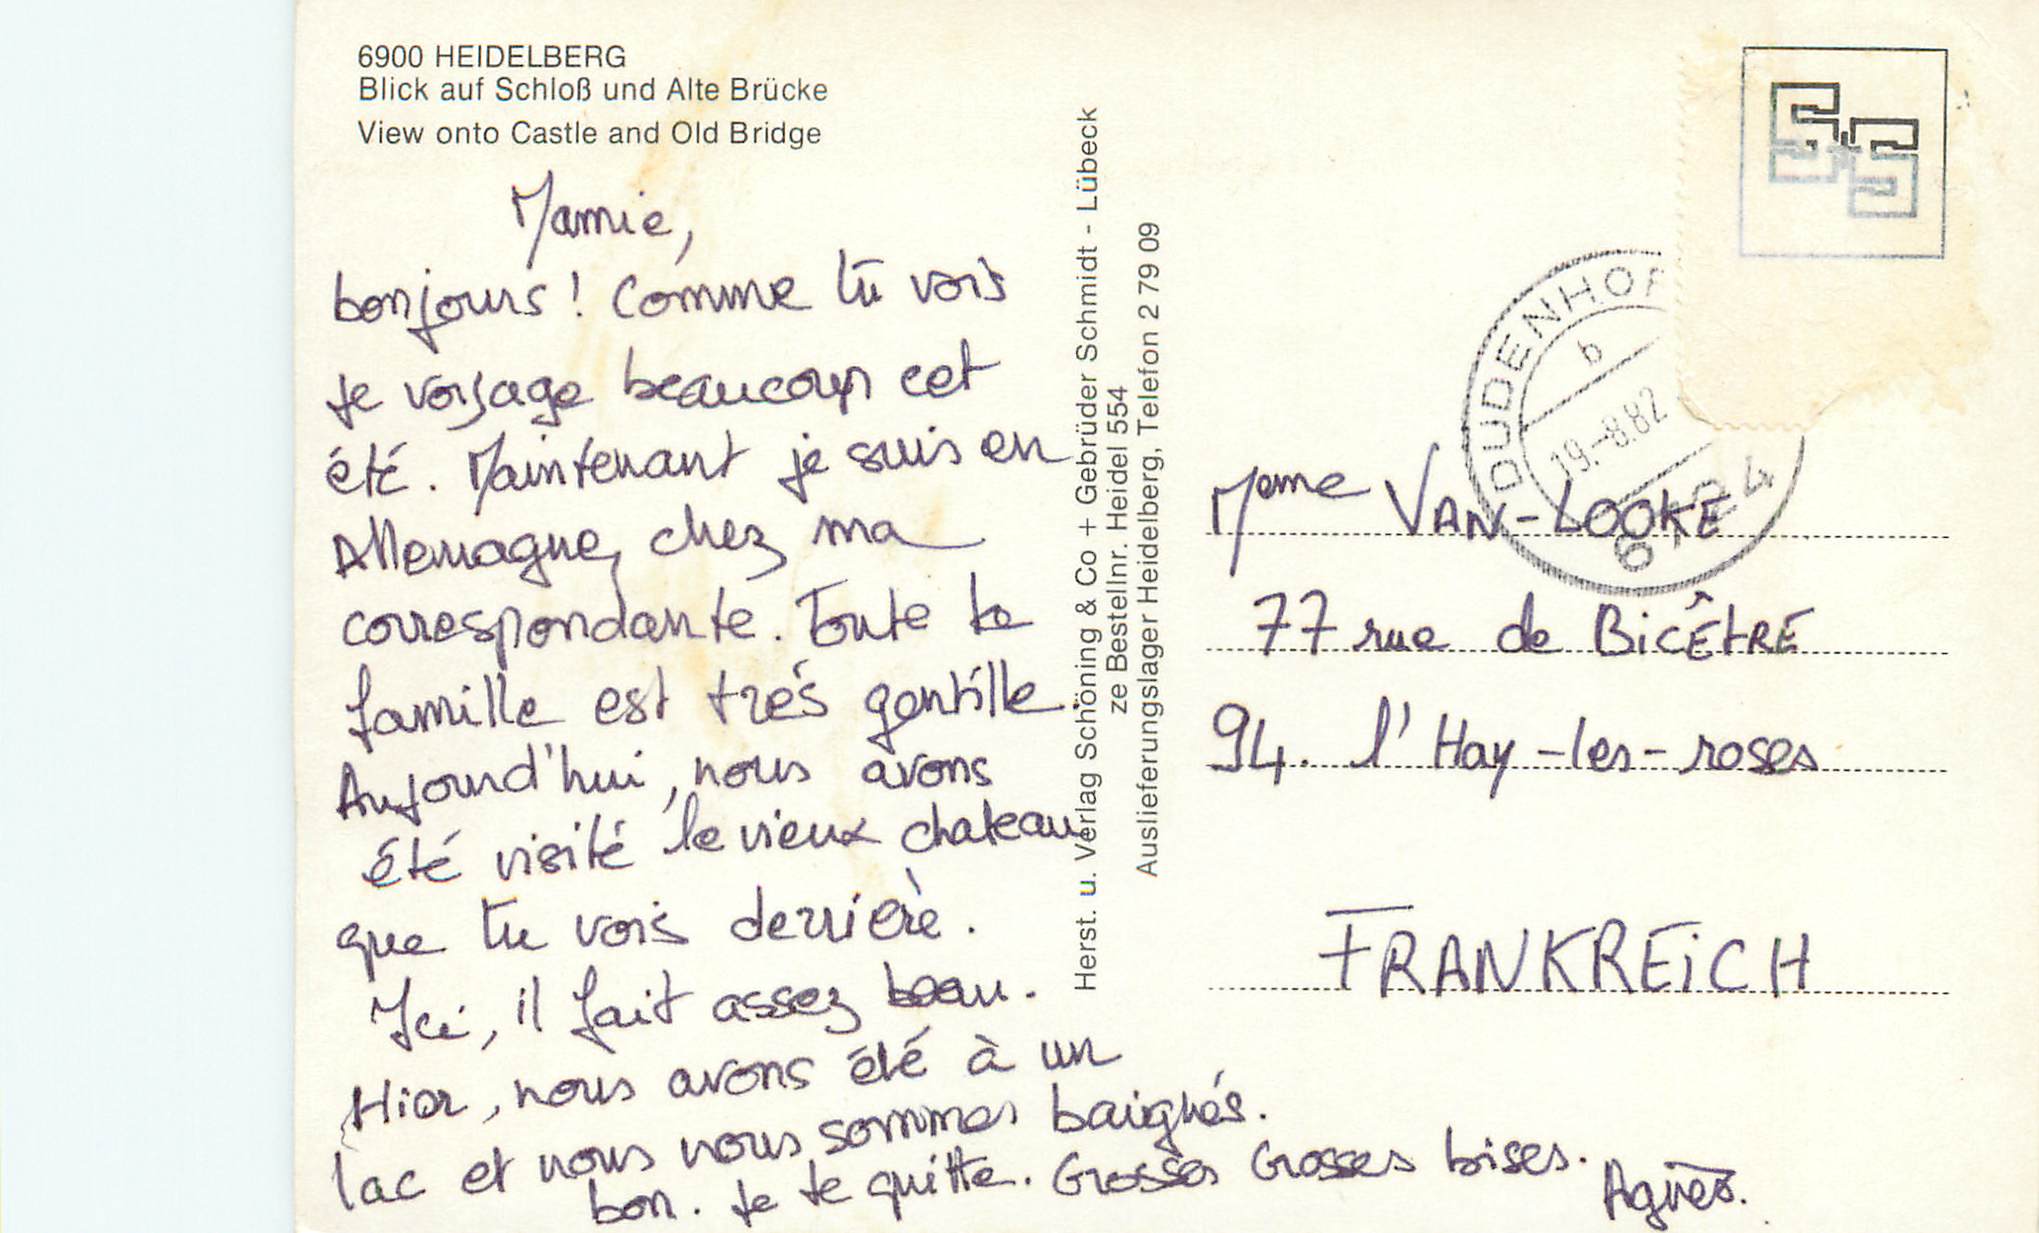 6900 HEIDELBERG
Blick auf Schloß und Alte Brücke
View onto Castle and Old Bridge
Mamie,
bonjours! Comme tu vois
je voyage beaucoup cet
été. Maintenant je suis en
Allemagne, chez ma
correspondante. Toute la
famille est très gentille.
Aujourd'hui, nous avons
été visité le vieux chateau
que tu vois derrière.
Ici, il fait assez beau.
Hier, nous avons été à un
lac et nous nous sommes baignés.
bon. Je te quitte. Grosses Grosses bises.
Agnès.
Herst. u. Verlag Schöning & Co + Gebrüder Schmidt - Lübeck
ze Bestellnr. Heidel 554
Auslieferungslager Heidelberg, Telefon 2 79 09
DUDENHOF
b
19.-8.82
6724
Meme VAN-LOOKE
77 rue de BICÊTRE
94. l'Hay-les-roses
FRANKREICH